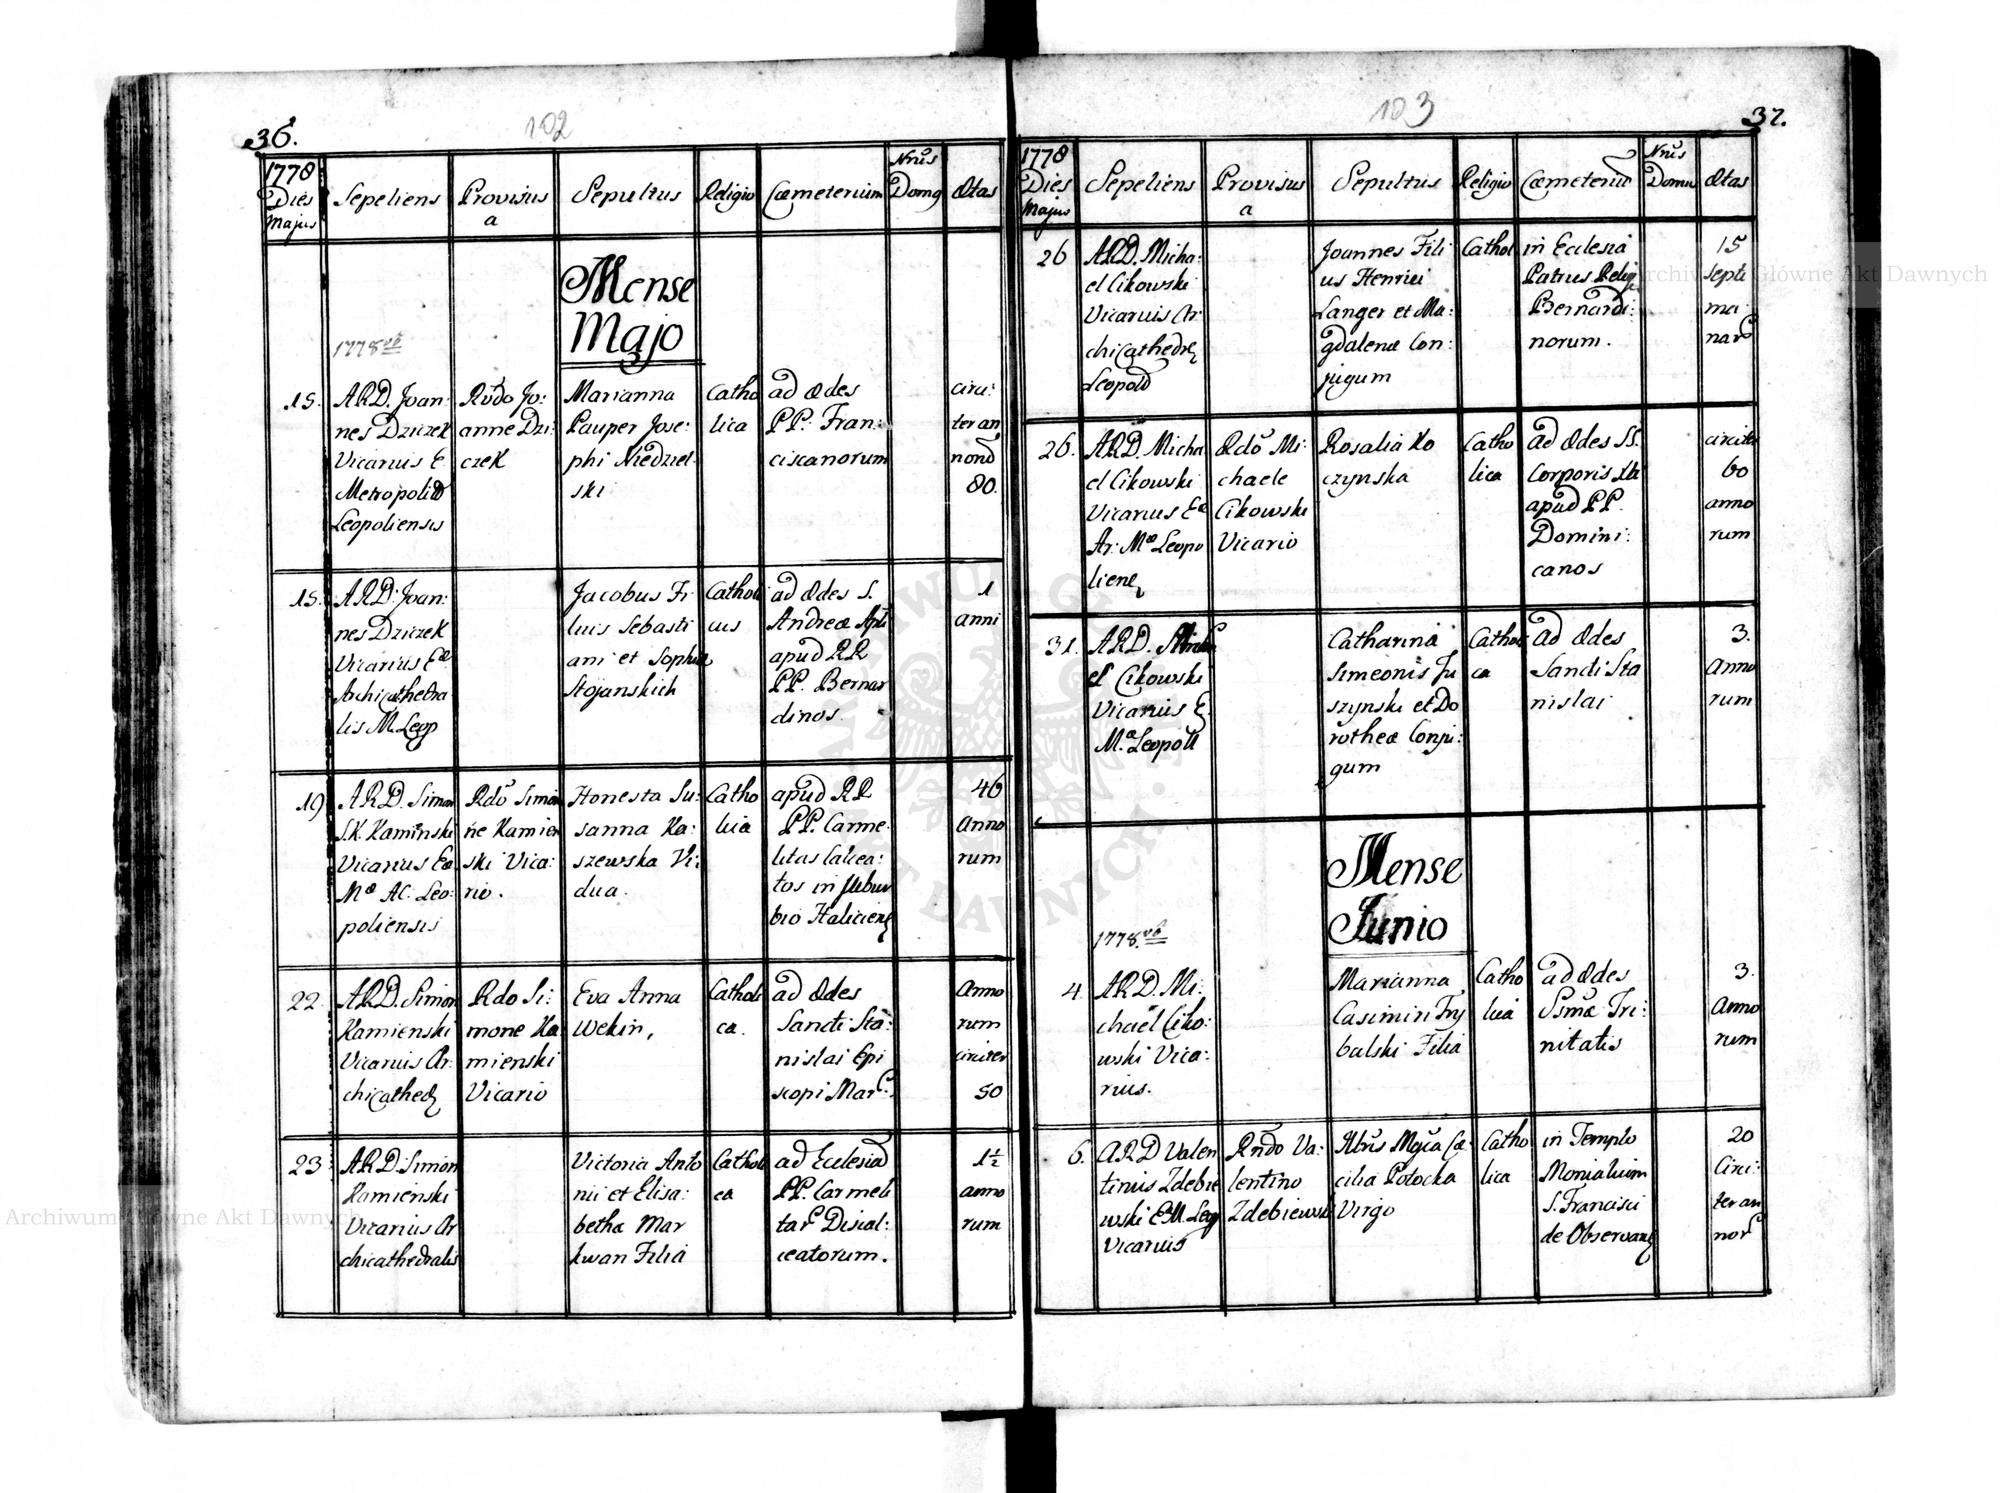 36.
102
1778
Dies
Majus
Sepeliens
Provisus
a
Sepultus
Religio
Cœmeterium
Nrus
Domq
Ætas
Mense
Majo
1778
15.
ARD. Joan:
nes Dziczek
Vicarius E
Metropolit
Leopoliensis
Rvdo Jo:
anne Dzi:
czek
Marianna
Pauper Jose:
phi Niedziel
ski
Catho
lica
ad ædes
PP. Fran:
ciscanorum
circi:
ter an
nono
80.
15.
ARD. Joan:
nes Dziczek
Vicarius Eæ
Archicathedra
lis M. Leop
Jacobus Fi
lius Sebasti
ani et Sophiæ
Stojanskich
Catholi
cus
ad ædes S.
Andreæ Apli
apud RR
PP. Bernar
dinos.
1
anni
19
ARD. Simon
SK. Kaminski
Vicarius Ea
Mæ AC. Leo:
poliensis
Rdo Simo
ne Kamien
ski Vica:
rio.
Honesta Su:
sanna Ka:
szewska Vi:
dua.
Catho
lica
apud RR
PP. Carme
litas Calcea:
tos in subur
bio Halicien
46
anno
rum
22.
ARD. Simon
Kamienski
Vicarius Ar:
chiCathed
Rdo Si:
mone Ka
mienski
Vicario
Eva Anna
Wekin,
Catholi
ca.
ad ædes
Sancti Sta:
nislai Epi
scopi Mar
Anno
rum
circiter
50
23
ARD. Simon
Kamienski
Vicarius Ar
chicathedralis
Victoria Anto
nii et Elisa:
bethæ Mar
kwan Filia
Catholi
ca
ad Ecclesia
PP. Carmeli
tar Discal:
ceatorum.
1½
anno
rum
103
37.
1778
Dies
Majus
Sepeliens
Provisus
a
Sepultus
Religio
Cœmeteriu
Nrus
Domus
Ætas
26
ARD. Micha:
el Cikowski
Vicarius Ar
chiCathedrl
Leopold
Joannes Fili
us Henrici
Langer et Ma:
gdalenæ Con:
jugum
Cathol
in Ecclesia
Patrus Relig
Bernardi:
norum.
15
Septi
ma
nar
26.
ARD. Micha
el Cikowski
Vicarius Eæ
Ar: Mæ Leopo
liene
Rdo Mi:
chaele
Cikowski
Vicario
Rosalia Ko
czynska
Catho
lica
ad ædes SS.
Corporis Xti
apud PP.
Domini:
canos
circiter
60
anno
rum
31.
ARD. Micha
el Cikowski
Vicarius E
Mæ Leopoli
Catharina
Simeonis Ju
szynski et Do
rotheæ Conju:
gum
Catholi
ca
ad ædes
Sancti Sta
nislai
3.
anno
rum
Mense
Junio
1778
4.
ARD. Mi:
chael Ciko:
wski Vica:
rius.
Marianna
Casimiri Try
balski Filia
Catho
lica
ad ædes
Ssmæ Tri:
nitatis
3.
anno
rum
6.
ARD Valen
tinus Zdebie
wski EM. Leop
Vicarius
Rndo Va:
lentino
Zdebiewski
Illris Mgca Cæ
cilia Potocka
Virgo
Catho
lica
in Templo
Monialium
S. Francisci
de Observan
20
Circi:
ter an
nor
Archiwum Główne Akt Dawnych
Archiwum Główne Akt Dawnych